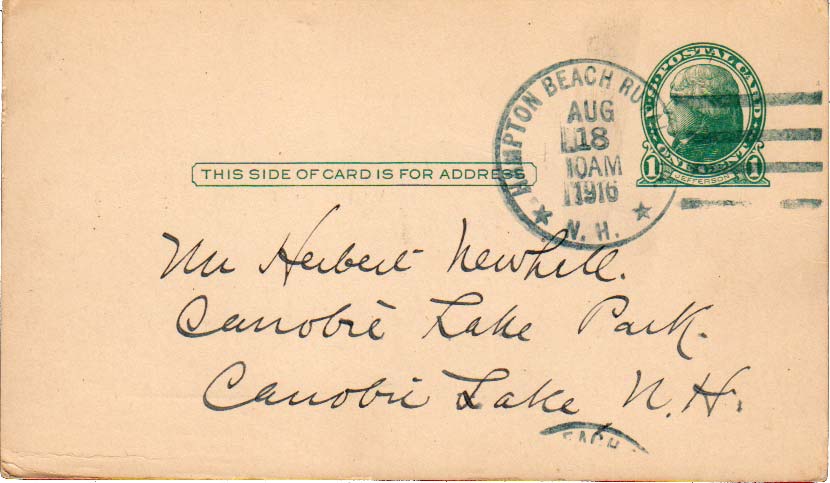 U.S. POSTAL CARD
1 JEFFERSON 1
HAMPTON BEACH RU
AUG
18
10AM
1916
N. H.
THIS SIDE OF CARD IS FOR ADDRESS
Mr Herbert Newhall.
Canobie Lake Park.
Canobie Lake N.H.
EACH